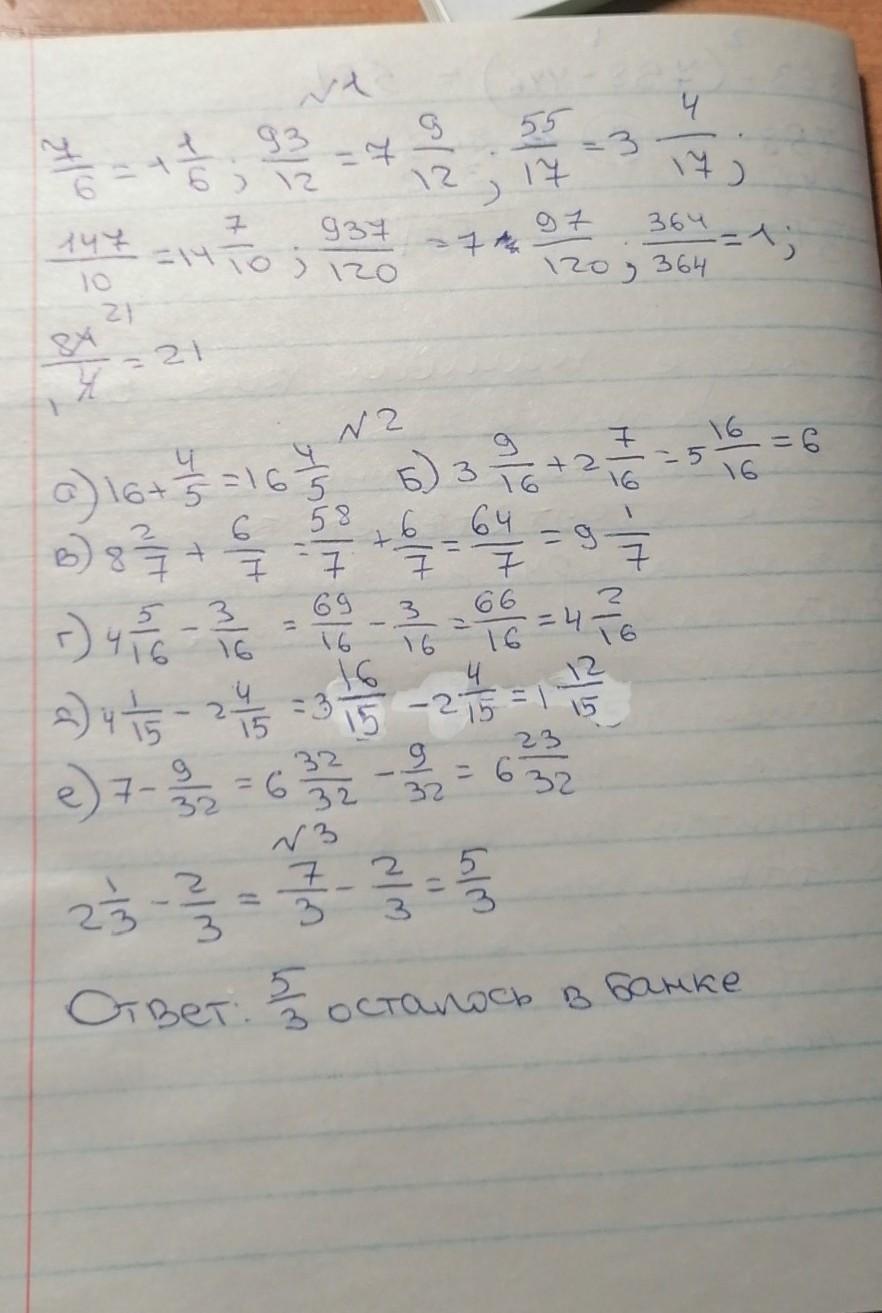 №1
7/6 = 1 1/6; 93/12 = 7 9/12; 55/17 = 3 4/17;
147/10 = 14 7/10; 937/120 = 7 97/120; 364/364 = 1;
84 21/4 1 = 21
№2
а) 16 + 4/5 = 16 4/5 Б) 3 9/16 + 2 7/16 = 5 16/16 = 6
в) 8 2/7 + 6/7 = 58/7 + 6/7 = 64/7 = 9 1/7
г) 4 5/16 - 3/16 = 69/16 - 3/16 = 66/16 = 4 2/16
д) 4 1/15 - 2 4/15 = 3 16/15 - 2 4/15 = 1 12/15
е) 7 - 9/32 = 6 32/32 - 9/32 = 6 23/32
№3
2 1/3 - 2/3 = 7/3 - 2/3 = 5/3
Ответ: 5/3 осталось в банке